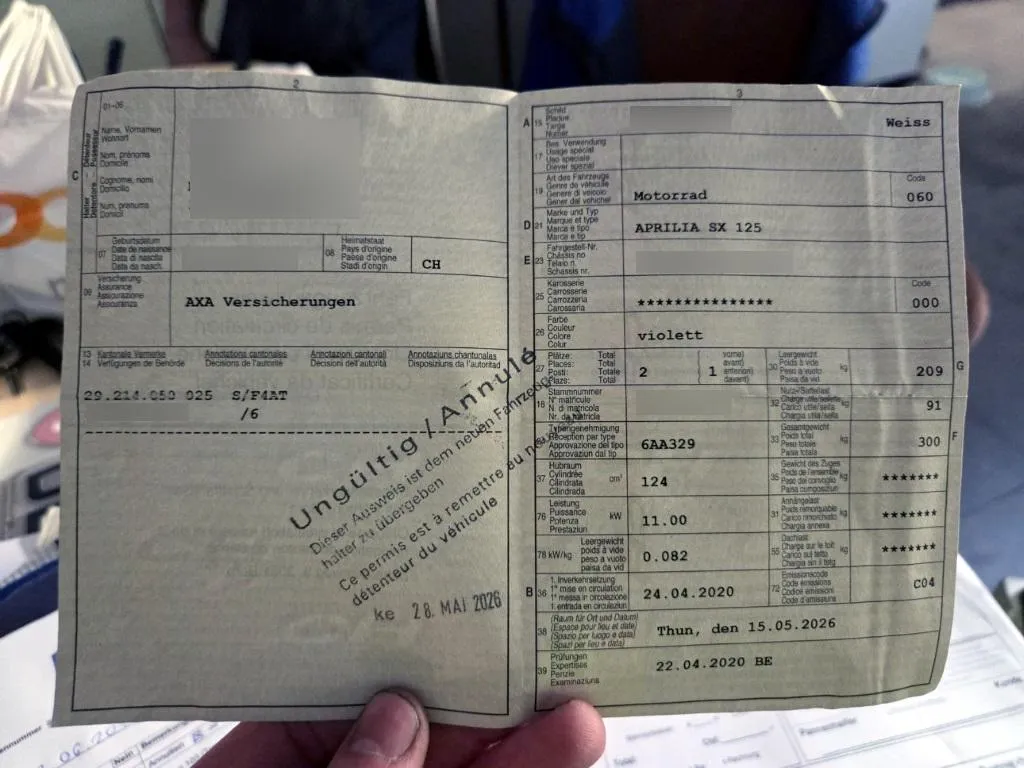 2
01-06
Name, Vornamen
Wohnort
Nom, prénoms
Domicile
Cognome, nomi
Domicilio
Num, prenums
Domicil
C
07
Geburtsdatum
Date de naissance
Data di nascita
Data da nasch.
08
Heimatstaat
Pays d'origine
Paese d'origine
Stadi d'origin
CH
09
Versicherung
Assurance
Assicurazione
Assicuranza
AXA Versicherungen
13 Kantonale Vermerke Annotations cantonales Annotazioni cantonali Annotaziuns chantunalas
14 Verfügungen der Behörde Décisions de l'autorité Decisioni dell'autorità Disposiziuns da l'autoritad
29.214.050 025 S/F4AT
/6
Ungültig / Annulé
Dieser Ausweis ist dem neuen Fahrzeug-
halter zu übergeben
Ce permis est à remettre au nouveau
détenteur du véhicule
ke 28. MAI 2026
3
A 15
Schild
Plaque
Targa
Numer
Weiss
17
Bes. Verwendung
Usage spécial
Uso speciale
Diever spezial
19
Art des Fahrzeugs
Genre de véhicule
Genere di veicolo
Gener dal vehichel
Motorrad
Code
060
D 21
Marke und Typ
Marque et type
Marca e tipo
Marca e tip
APRILIA SX 125
E 23
Fahrgestell-Nr.
Châssis no
Telaio n.
Schassis nr.
25
Karosserie
Carrosserie
Carrozzeria
Carossaria
***************
Code
000
26
Farbe
Couleur
Colore
Colur
violett
27
Plätze: Total
Places: Total
Posti: Totale
Plazs: Total
2
( 1
vorne)
avant)
anteriori)
davant)
30
Leergewicht
Poids à vide
Peso a vuoto
Paisa da vid
kg
209
G
18
Stammnummer
N° matricule
N. di matricola
Nr. da matricla
32
Nutz-/Sattellast
Charge utile/sellette
Carico utile/sella
kg
91
Typengenehmigung
Réception par type
Approvazione del tipo
Approvaziun dal tip
6AA329
33
Gesamtgewicht
Poids total
Peso totale
Paisa totala
kg
300
F
37
Hubraum
Cylindrée
Cilindrata
Cilindrada
cm³
124
35
Gewicht des Zuges
Poids de l'ensemble
Peso del convoglio
Paisa cumposiziun
kg
*******
76
Leistung
Puissance
Potenza
Prestaziun
kW
11.00
31
Anhängelast
Poids remorquable
Carico rimorchiato
Chargia annexa
kg
*******
78 kW/kg
Leergewicht
poids à vide
peso a vuoto
paisa da vid
0.082
55
Dachlast
Charge sur le toit
Carico sul tetto
Chargia sin il tetg
kg
*******
B 36
1. Inverkehrsetzung
1re mise en circulation
1a messa in circolazione
1. entrada en circulaziun
24.04.2020
72
Emissionscode
Code émissions
Codice emissioni
Code d'emissiuns
C04
38
(Raum für Ort und Datum)
(Espace pour lieu et date)
(Spazio per luogo e data)
(Spazi per lieu e data)
Thun, den 15.05.2026
39
Prüfungen
Expertises
Perizie
Examinaziuns
22.04.2020 BE